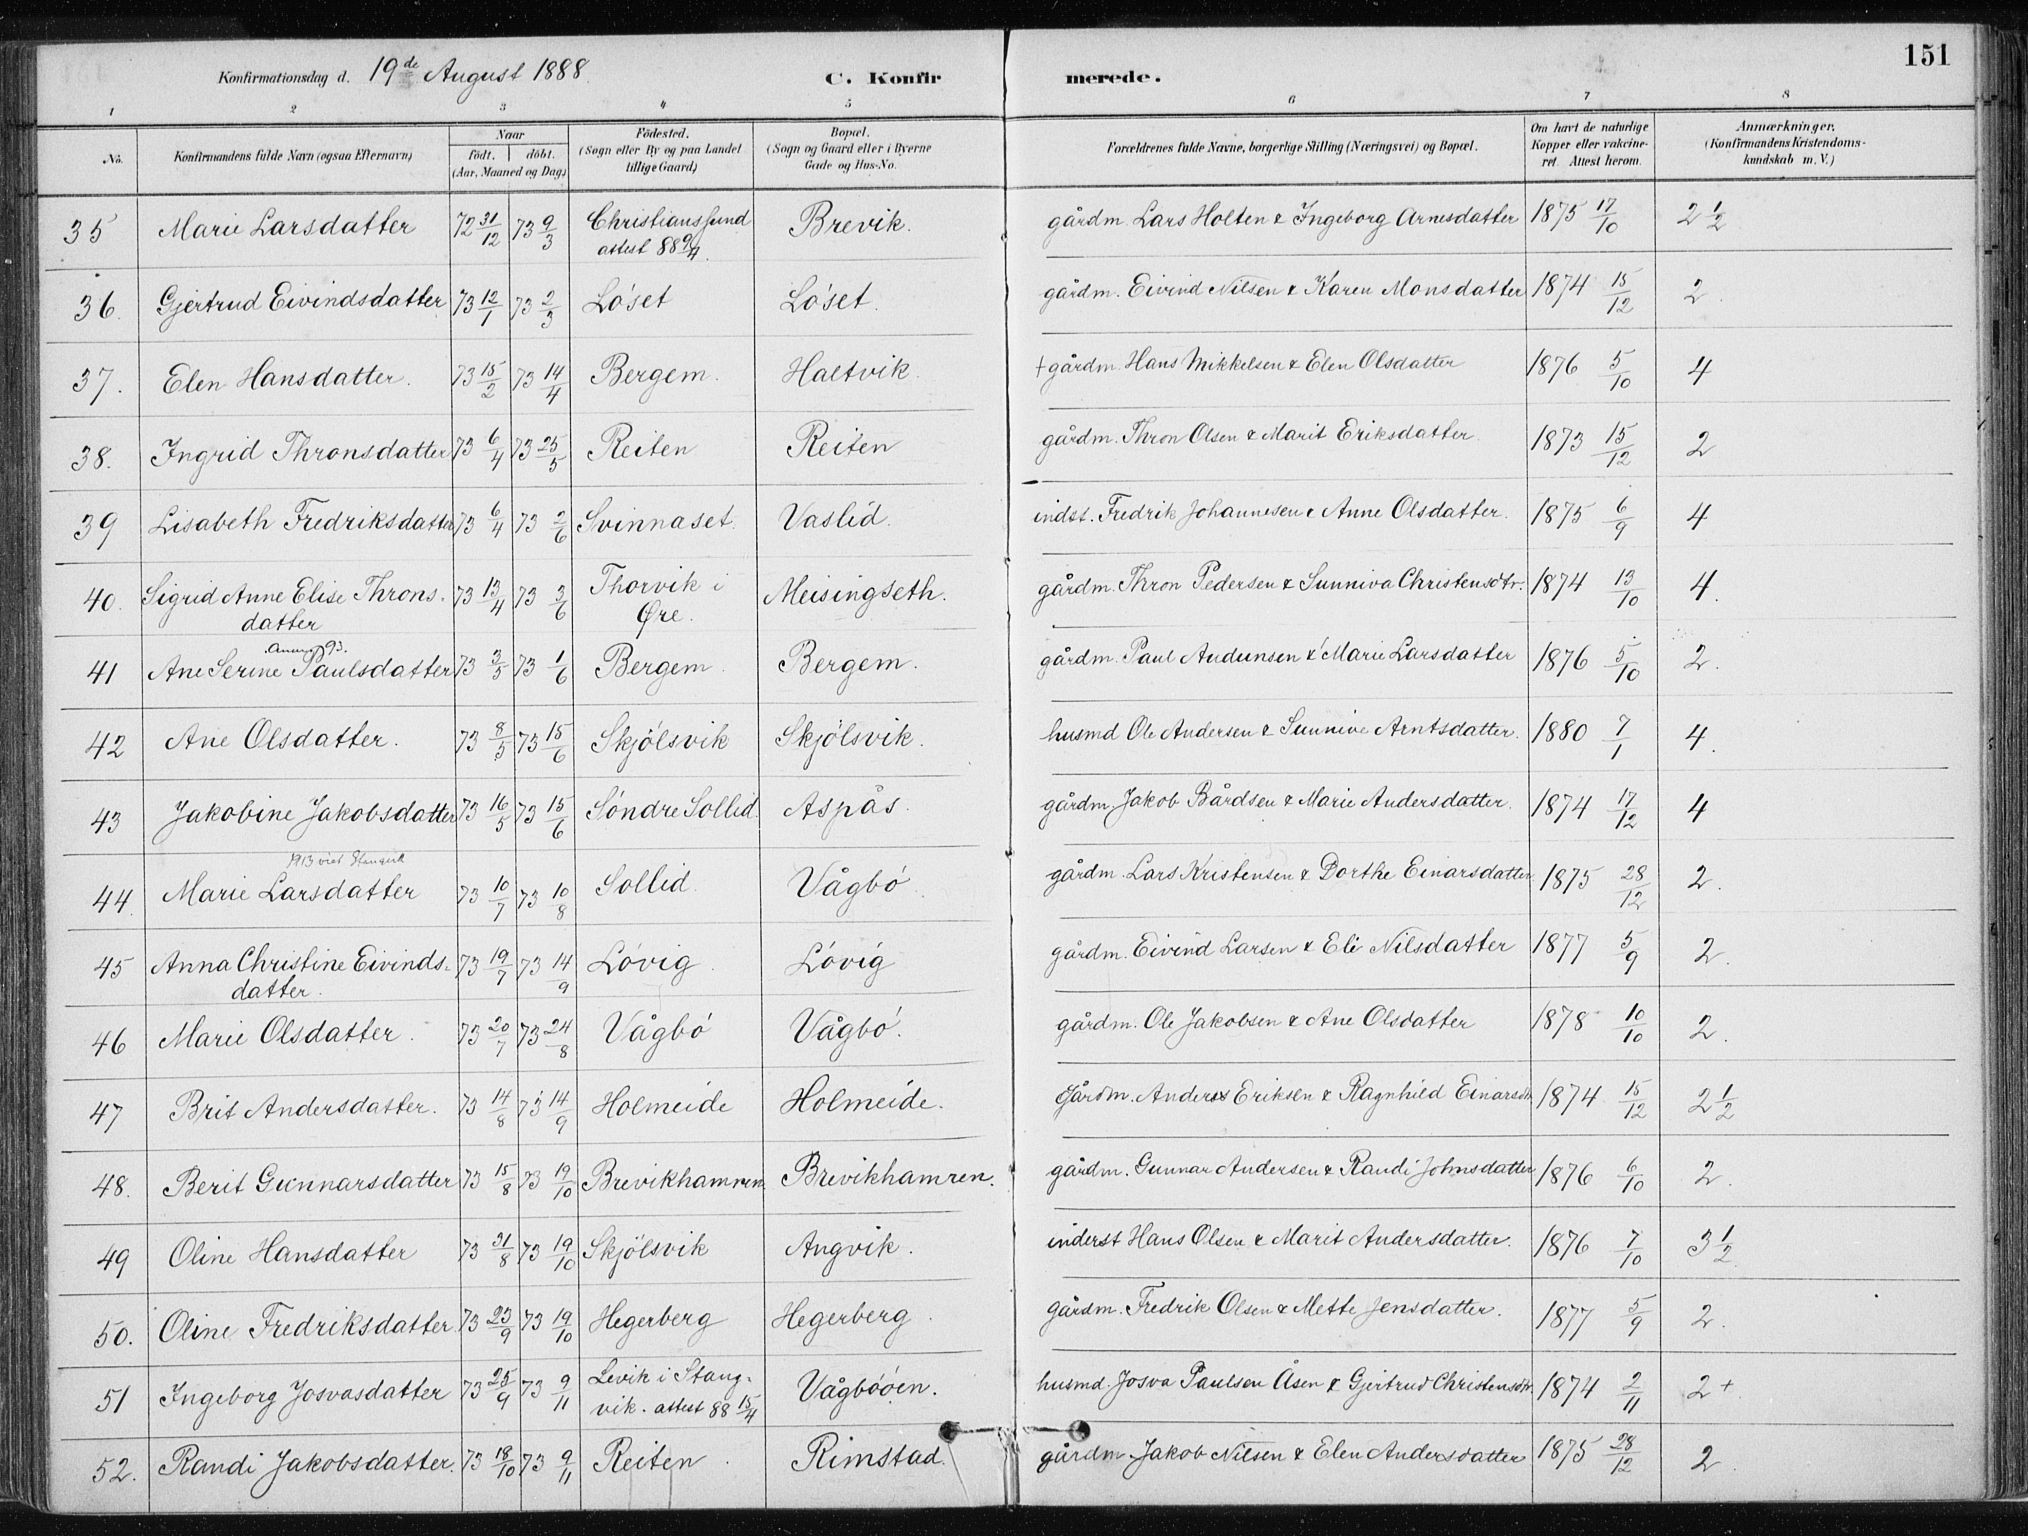 151
Konfirmationsdag d. 19de August 1888. C. Konfirmerede.
1 2 3 4 5 6 7 8
No. Konfirmandens fulde Navn (ogsaa Efternavn) Naar født. døbt. (Aar, Maaned og Dag) Fødested. (Sogn eller By og paa Landet tillige Gaard) Bopæl. (Sogn og Gaard eller i Byerne Gade og Hus-No. Forældrenes fulde Navne, borgerlige Stilling (Næringsvei) og Bopæl. Om havt de naturlige Kopper eller vakcineret. Attest herom. Anmærkninger. (Konfirmandens Kristendomskundskab m. V.)
35 Marie Larsdatter 72 31/12 73 9/3 Christianssund attest 88 9/4. Brevik. gårdm. Lars Holten & Ingeborg Arnesdatter 1875 17/10 2 1/2
36. Gjertrud Eivindsdatter 73 12/1 73 2/3 Löset Löset. gårdm. Eivind Nilsen & Karen Monsdatter 1874 15/12 2.
37. Elen Hansdatter. 73 15/2 73 14/4 Bergem. Haltvik. + gårdm. Hans Mikkelsen & Elen Olsdatter 1876 5/10 4
38. Ingrid Thronsdatter 73 6/4 73 25/5 Reiten Reiten gårdm. Thron Olsen & Marit Eriksdatter. 1873 15/12 2
39 Lisabeth Fredriksdatter 73 6/4 73 2/6 Svinnaset. Vaslid. indst. Fredrik Johannesen & Anne Olsdatter. 1875 6/9 4
40. Sigrid Anne Elise Throns-datter 73 13/4 73 3/6 Thorvik i Øre. Meisingseth. gårdm. Thron Pedersen & Sunniva Christensdtr. 1874 13/10 4.
93.
41 Ane Serine Paulsdatter 73 3/5 73 1/6 Bergem. Bergem. gårdm. Paul Audunsen & Marie Larsdatter 1876 5/10 2.
42 Ane Olsdatter. 73 8/5 73 15/6 Skjölsvik Skjölsvik. husmd Ole Andersen & Sunnive Arntsdatter. 1880 7/1 4.
43 Jakobine Jakobsdatter 73 16/5 73 15/6 Söndre Sollid. Aspås. gårdm. Jakob Bårdsen & Marie Andersdatter. 1874 17/12 4
1913 viet Stangvik
44. Marie Larsdatter 73 10/7 73 10/8 Sollid. Vågbö. gårdm. Lars Kristensen & Dorthe Einarsdatter 1875 28/12 2.
45 Anna Christine Eivinds-datter. 73 19/7 73 14/9 Lövig. Lövig gårdm. Eivind Larsen & Eli Nilsdatter 1877 5/9 2.
46 Marie Olsdatter. 73 20/7 73 24/8 Vågbö Vågbö. gårdm. Ole Jakobsen & Ane Olsdatter 1878 10/10 2.
47 Brit Andersdatter. 73 14/8 73 14/9 Holmeide Holmeide. Gårdm. Anders Eriksen & Ragnhild Einarsdtr. 1874 15/12 2 1/2
48. Berit Gunnarsdatter 73 15/8 73 19/10 Brevikhamren. Brevikhamren. gårdm. Gunnar Andersen & Randi Johnsdatter 1876 6/10 2.
49 Oline Hansdatter 73 31/8 73 19/10 Skjölsvik Angvik. inderst Hans Olsen & Marit Andersdatter. 1876 7/10 3 1/2
50. Oline Fredriksdatter 73 23/9 73 19/10 Hegerberg Hegerberg. gårdm. Fredrik Olsen & Mette Jensdatter. 1877 5/9 2.
51 Ingeborg Josvasdatter 73 25/9 73 9/11 Levik i Stang-vik. attest 88 15/4 Vågbööen. husmd. Josva Paulsen Åsen & Gjertrud Christensdtr. 1874 2/11 2+.
52. Randi Jakobsdatter. 73 18/10 73 9/11 Reiten. Rimstad. gårdm. Jakob Nilsen & Elen Andersdatter 1875 28/12 2.